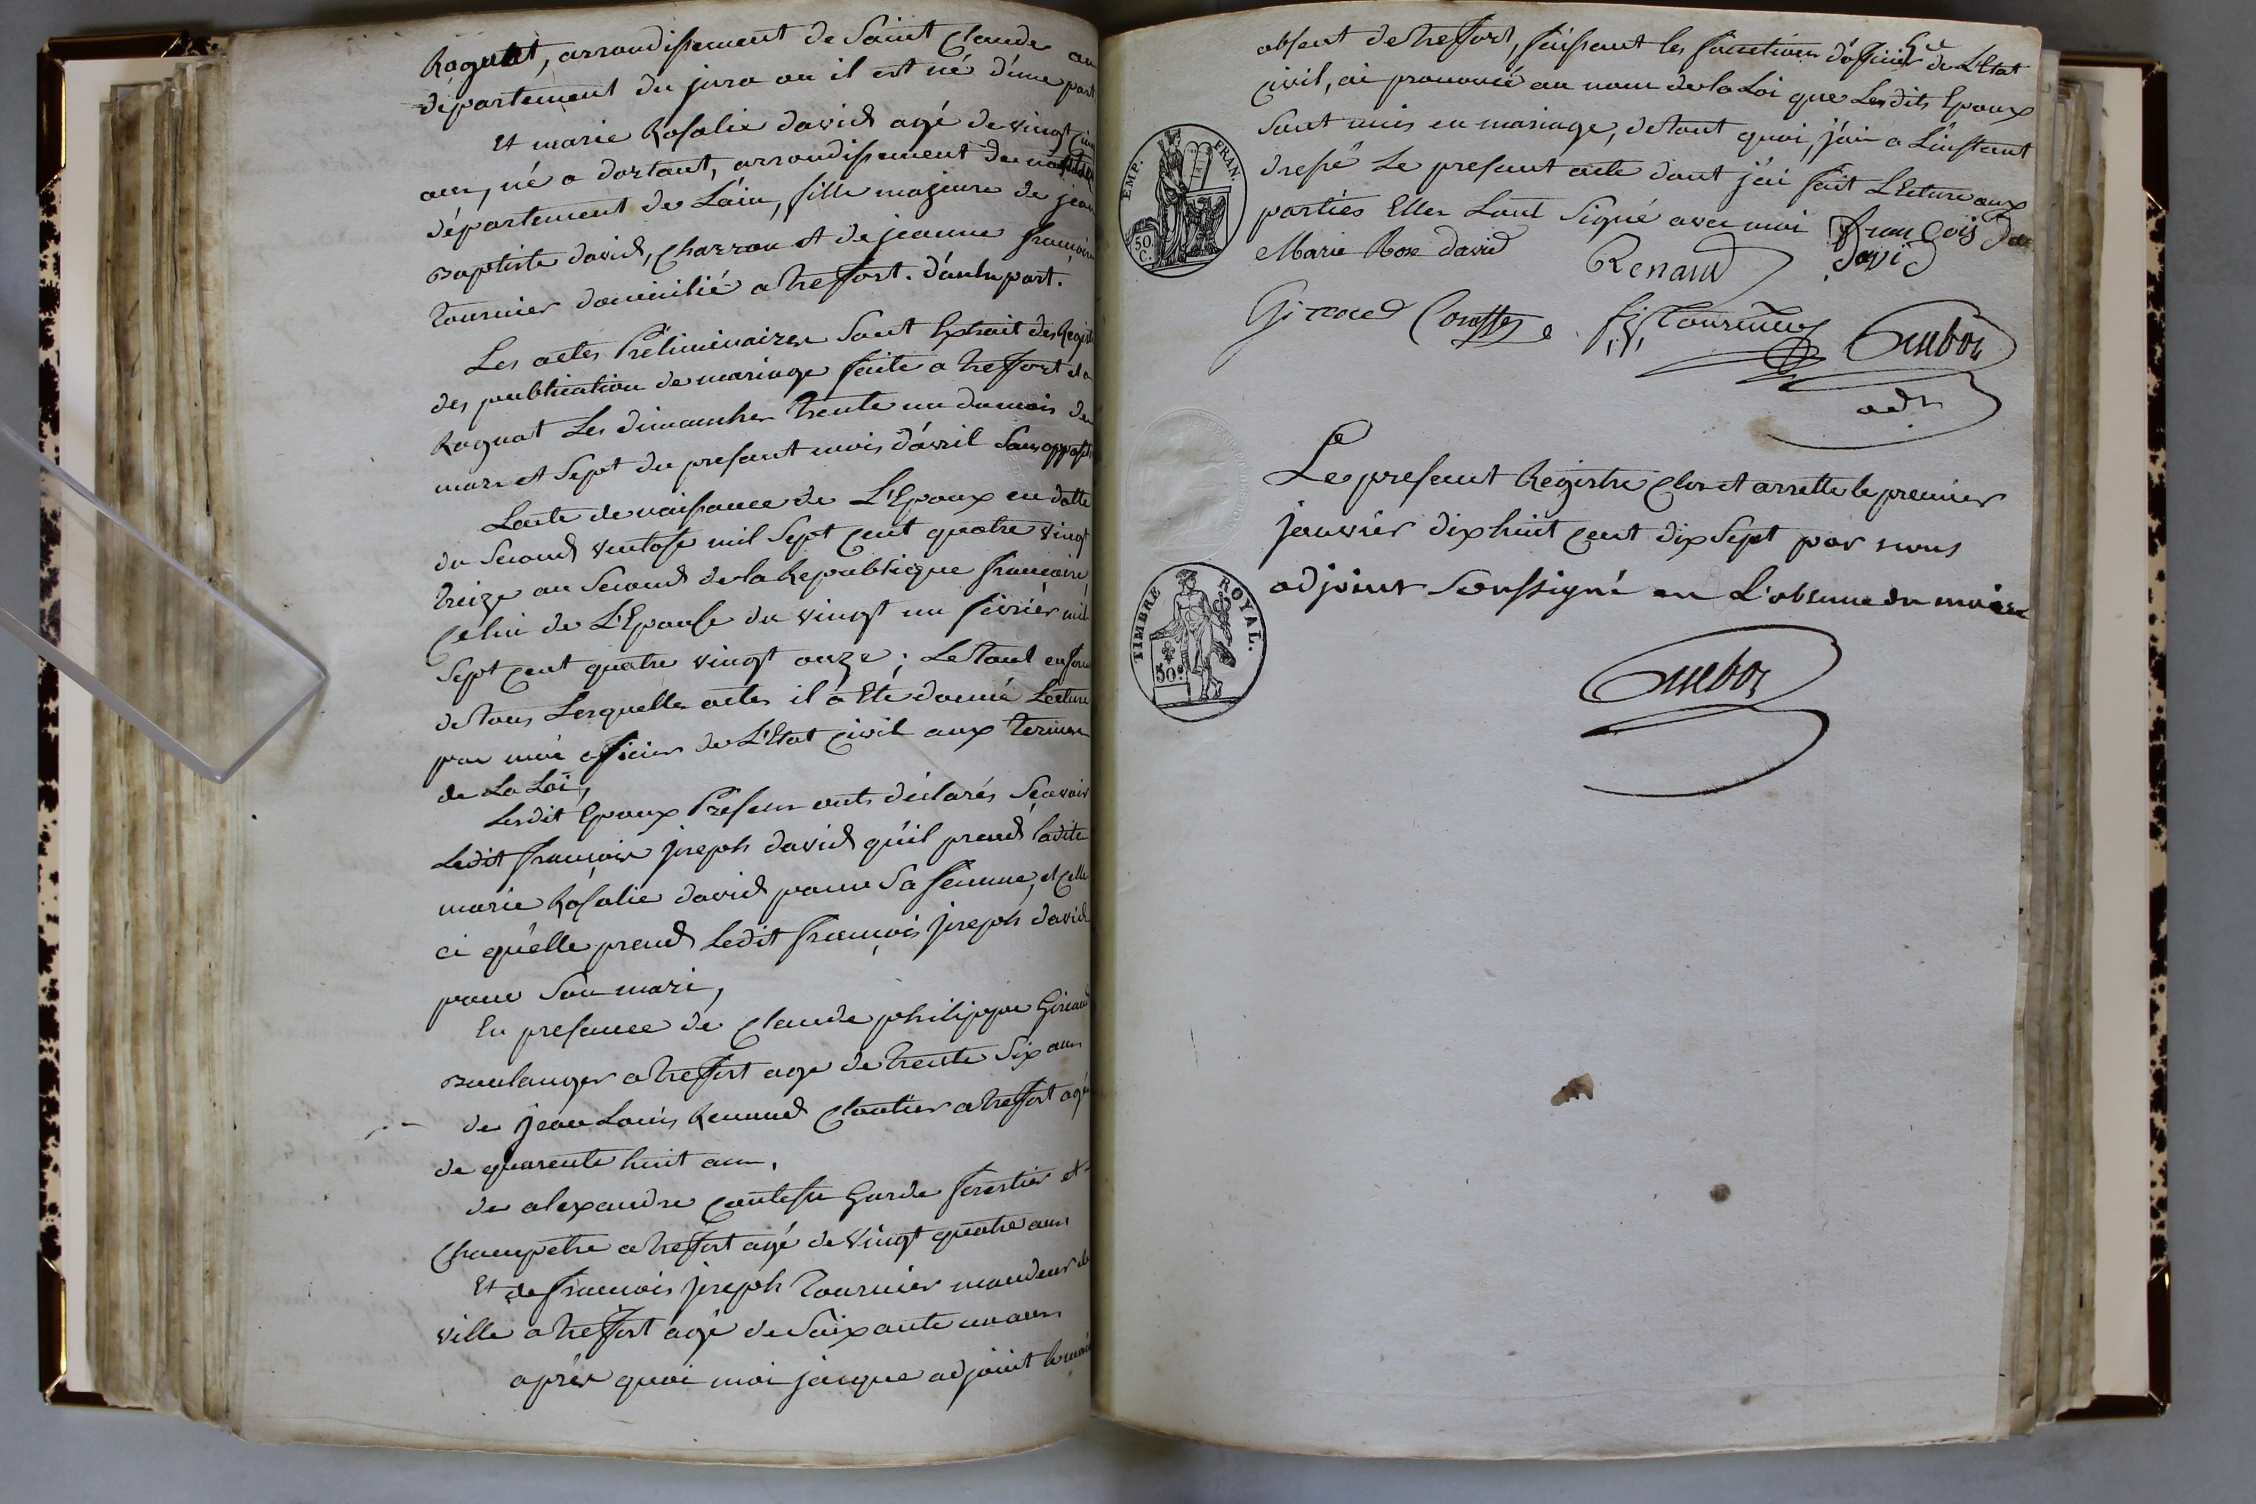 Rognat, arrondissement de Saint Claude au
département du jura ou il est né d'une part
Et marie Rosalie david agé de vingt cinq
ans, né a dortant, arrondissement de nantua
département de L'ain, fille majeure de jean
Baptiste david, charron et de jeanne françoise
Tournier domicilié a treffort. d'autre part.
Les actes Préliminaires Sont Extrait des Regist
des publication de mariage faite a treffort et a
Rognat Les dimanches trente un du mois de
mars et Sept du present mois d'avril Sans opposit
Lacte de naissance de L'Epoux en datte
du Second ventose mil Sept cent quatre vingt
treize an Second de la Republique françoise
Celui de L'Epouse du vingt un fevrier mil
Sept cent quatre vingt onze; Le tout en forme
de tous Lesquelles actes il a Eté donné Lecture
par moi officier de L'Etat civil aux termes
de La Loi,
Lesdit Epoux Presens onts déclarés Scavoir
Ledit françois joseph david qu'il prend ladite
marie Rosalie david pour Sa femme, et celle
ci qu'elle prend Ledit françois joseph david
pour Son mari,
En presance de Claude philippe Giraud
Boulanger a treffort age de trente Six ans
de jean Louis Renaud Cloutier a treffort agé
de quarente huit ans,
de alexandre Garde forestier et
Champetre a treffort agé de vingt quatre ans
Et de françois joseph Tournier mandeur de
ville a treffort agé de Soixante un ans
après quoi moi adjoint le maire
absent de treffort, faissant les fonctions d'officier de L'Etat
civil, ai prononcé au nom de la Loi que Lesdits Epoux
Sont unis en mariage, de tout quoi, j'ai a L'instant
dressé Le present acte dont j'ai fait Lecture aux
parties Elles Sont Signé avec moi françois
Marie Rose david Renaud david
Giraud fs Tournier
adj.
EMP. FRAN.
50. C.
Le present Registre clos et arretté le premier
janvier dix huit cent dix Sept par nous
adjoint Soussigné en L'absence du maire
TIMBRE ROYAL.
50c